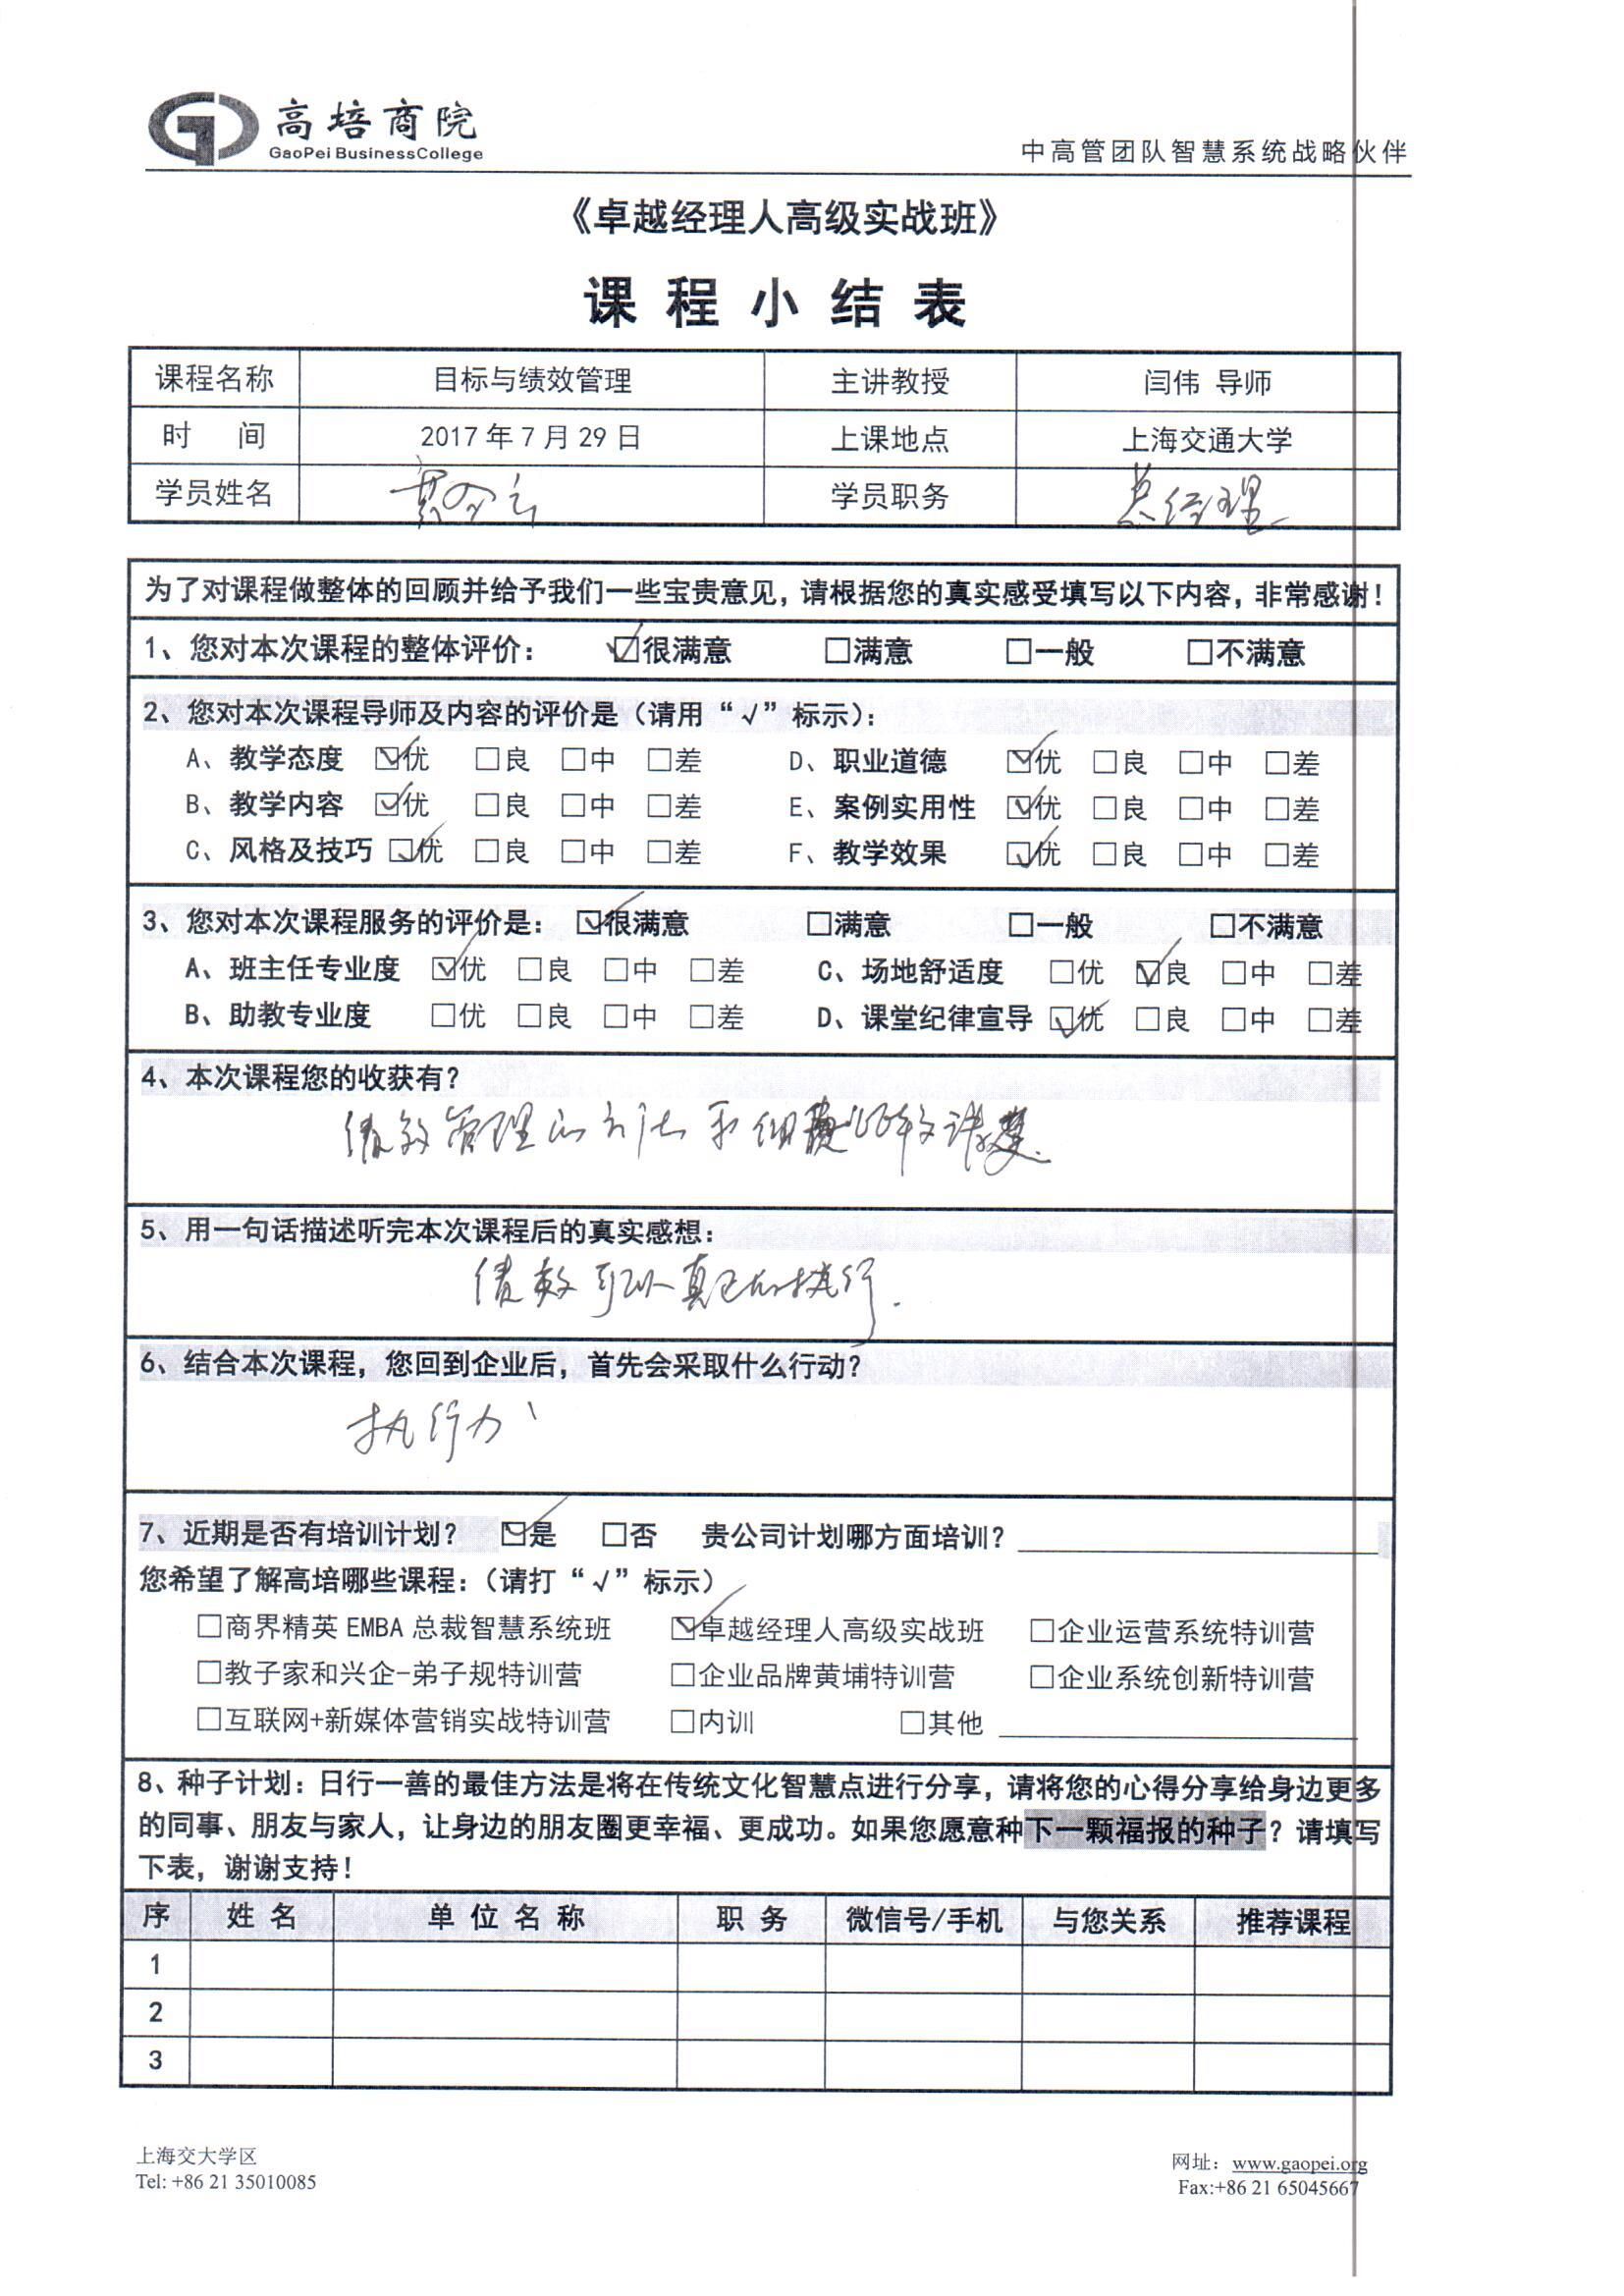 高培商院
GaoPei BusinessCollege
中高管团队智慧系统战略伙伴
《卓越经理人高级实战班》
课程小结表
课程名称 目标与绩效管理 主讲教授 闫伟 导师
时 间 2017年7月29日 上课地点 上海交通大学
学员姓名 学员职务 总经理
为了对课程做整体的回顾并给予我们一些宝贵意见，请根据您的真实感受填写以下内容，非常感谢！
1、您对本次课程的整体评价： ☑很满意 □满意 □一般 □不满意
2、您对本次课程导师及内容的评价是（请用“√”标示）：
A、教学态度 ☑优 □良 □中 □差 D、职业道德 ☑优 □良 □中 □差
B、教学内容 ☑优 □良 □中 □差 E、案例实用性 ☑优 □良 □中 □差
C、风格及技巧 ☑优 □良 □中 □差 F、教学效果 ☑优 □良 □中 □差
3、您对本次课程服务的评价是： ☑很满意 □满意 □一般 □不满意
A、班主任专业度 ☑优 □良 □中 □差 C、场地舒适度 □优 ☑良 □中 □差
B、助教专业度 □优 □良 □中 □差 D、课堂纪律宣导 ☑优 □良 □中 □差
4、本次课程您的收获有？
绩效管理的方法和细
5、用一句话描述听完本次课程后的真实感想：
绩效可以真正的执行.
6、结合本次课程，您回到企业后，首先会采取什么行动？
执行力
7、近期是否有培训计划？ ☑是 □否 贵公司计划哪方面培训？
您希望了解高培哪些课程：（请打“√”标示）
□商界精英 EMBA 总裁智慧系统班 ☑卓越经理人高级实战班 □企业运营系统特训营
□教子家和兴企-弟子规特训营 □企业品牌黄埔特训营 □企业系统创新特训营
□互联网+新媒体营销实战特训营 □内训 □其他
8、种子计划：日行一善的最佳方法是将在传统文化智慧点进行分享，请将您的心得分享给身边更多
的同事、朋友与家人，让身边的朋友圈更幸福、更成功。如果您愿意种下一颗福报的种子？请填写
下表，谢谢支持！
序 姓名 单位名称 职务 微信号/手机 与您关系 推荐课程
1
2
3
上海交大学区 网址：www.gaopei.org
Tel: +86 21 35010085 Fax:+86 21 65045667